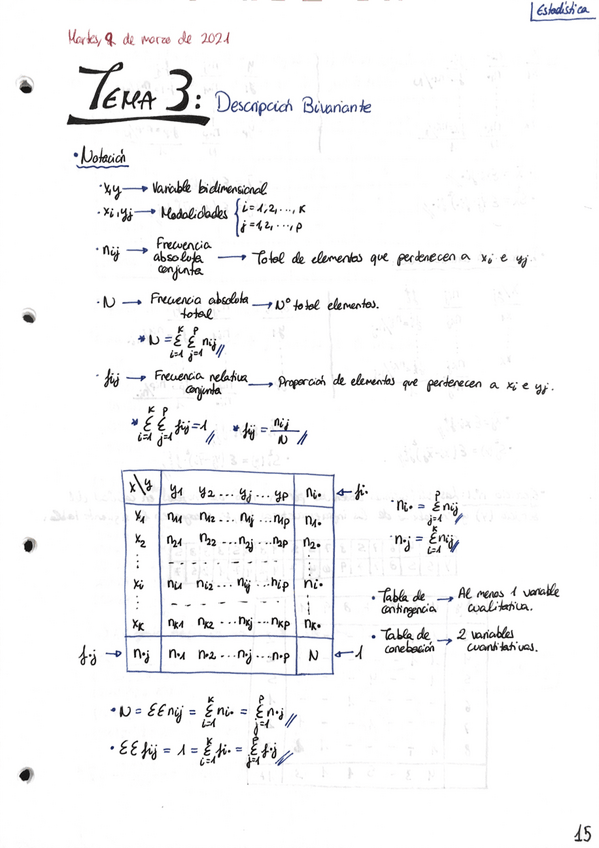 Estadística
Martes, 9 de marzo de 2021
TEMA 3: Descripción Bivariante
• Notación
• x,y → Variable bidimensional
• xi, yj → Modalidades { i = 1,2, ..., K
j = 1,2, ..., P
• nij → Frecuencia absoluta conjunta → Total de elementos que pertenecen a xi e yj.
• N → Frecuencia absoluta total → Nº total elementos.
* N = Σ(i=1, K) Σ(j=1, P) nij //
• fij → Frecuencia relativa conjunta → Proporción de elementos que pertenecen a xi e yj.
* Σ(i=1, K) Σ(j=1, P) fij = 1 // * fij = nij / N //
x\y y1 y2 ... yj ... yp ni• ← fi•
x1 n11 n12 ... n1j ... n1p n1•
x2 n21 n22 ... n2j ... n2p n2•
xi ni1 ni2 ... nij ... nip ni•
xK nK1 nK2 ... nKj ... nKp nK•
f•j → n•j n•1 n•2 ... n•j ... n•p N ← 1
• ni• = Σ(j=1, P) nij //
• n•j = Σ(i=1, K) nij //
• Tabla de contingencia → Al menos 1 variable cualitativa.
• Tabla de correlación → 2 variables cuantitativas.
• N = ΣΣ nij = Σ(i=1, K) ni• = Σ(j=1, P) n•j //
• ΣΣ fij = 1 = Σ(i=1, K) fi• = Σ(j=1, P) f•j //
15